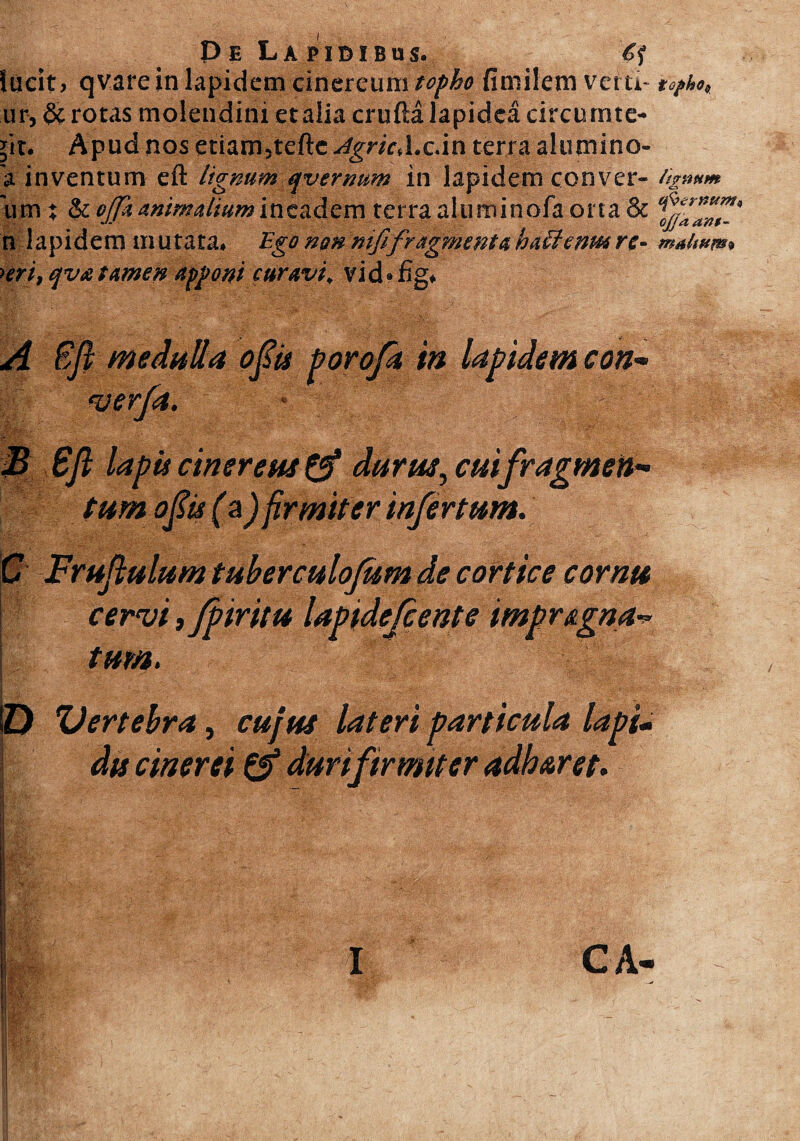 DE LAPIDIBUS. 65
lucit, qvare in lapidem cinereum topho ſimilem verti- topho,
ur, & rotas molendini et alia cruſtâ lapideâ circumte-
git. Apud nos etiam, teſte Agric. l.c. in terra alumino-
a inventum eſt lignum qvernum in lapidem conver- lignum
um: & oſſa animalium in eadem terra aluminoſa orta & qvernum,
oſſa ani-
n lapidem mutata. Ego non niſi fragmenta hactenus re- malium,
eri, qvæ tamen apponi curavi. vid. fig.
A Eſt medulla oſsis poroſa in lapidem con-
verſa.
B Eſt lapis cinereus & durus, cui fragmen-
tum oſsis (a) firmiter inſertum.
C Fruſtulum tuberculoſum de cortice cornu
cervi, ſpiritu lapideſcente imprægna-
tum.
D Vertebra, cujus lateri particula lapi-
dis cinerei & duri firmiter adhæret.
I CA-